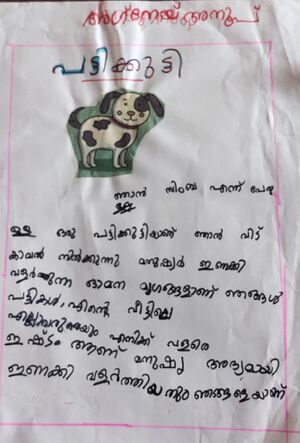 അഗ്നേയ് അനൂപ്
പട്ടിക്കുട്ടി
ഞാൻ സിംബ എന്ന് പേരു
ള്ള ഒരു പട്ടിക്കുട്ടിയാണ് ഞാൻ വീട്
കാവൽ നിൽക്കുന്നു മനുഷ്യർ ഇണക്കി
വളർത്തുന്ന ഓമന മൃഗങ്ങളാണ് ഞങ്ങൾ
പട്ടികൾ, എന്റെ വീട്ടിലെ
എല്ലാവരുടെയും എനിക്ക് വളരെ
ഇഷ്ടം ആണ് മനുഷ്യ ആദ്യമായി
ഇണക്കി വളർത്തിയതും ഞങ്ങളെയാണ്